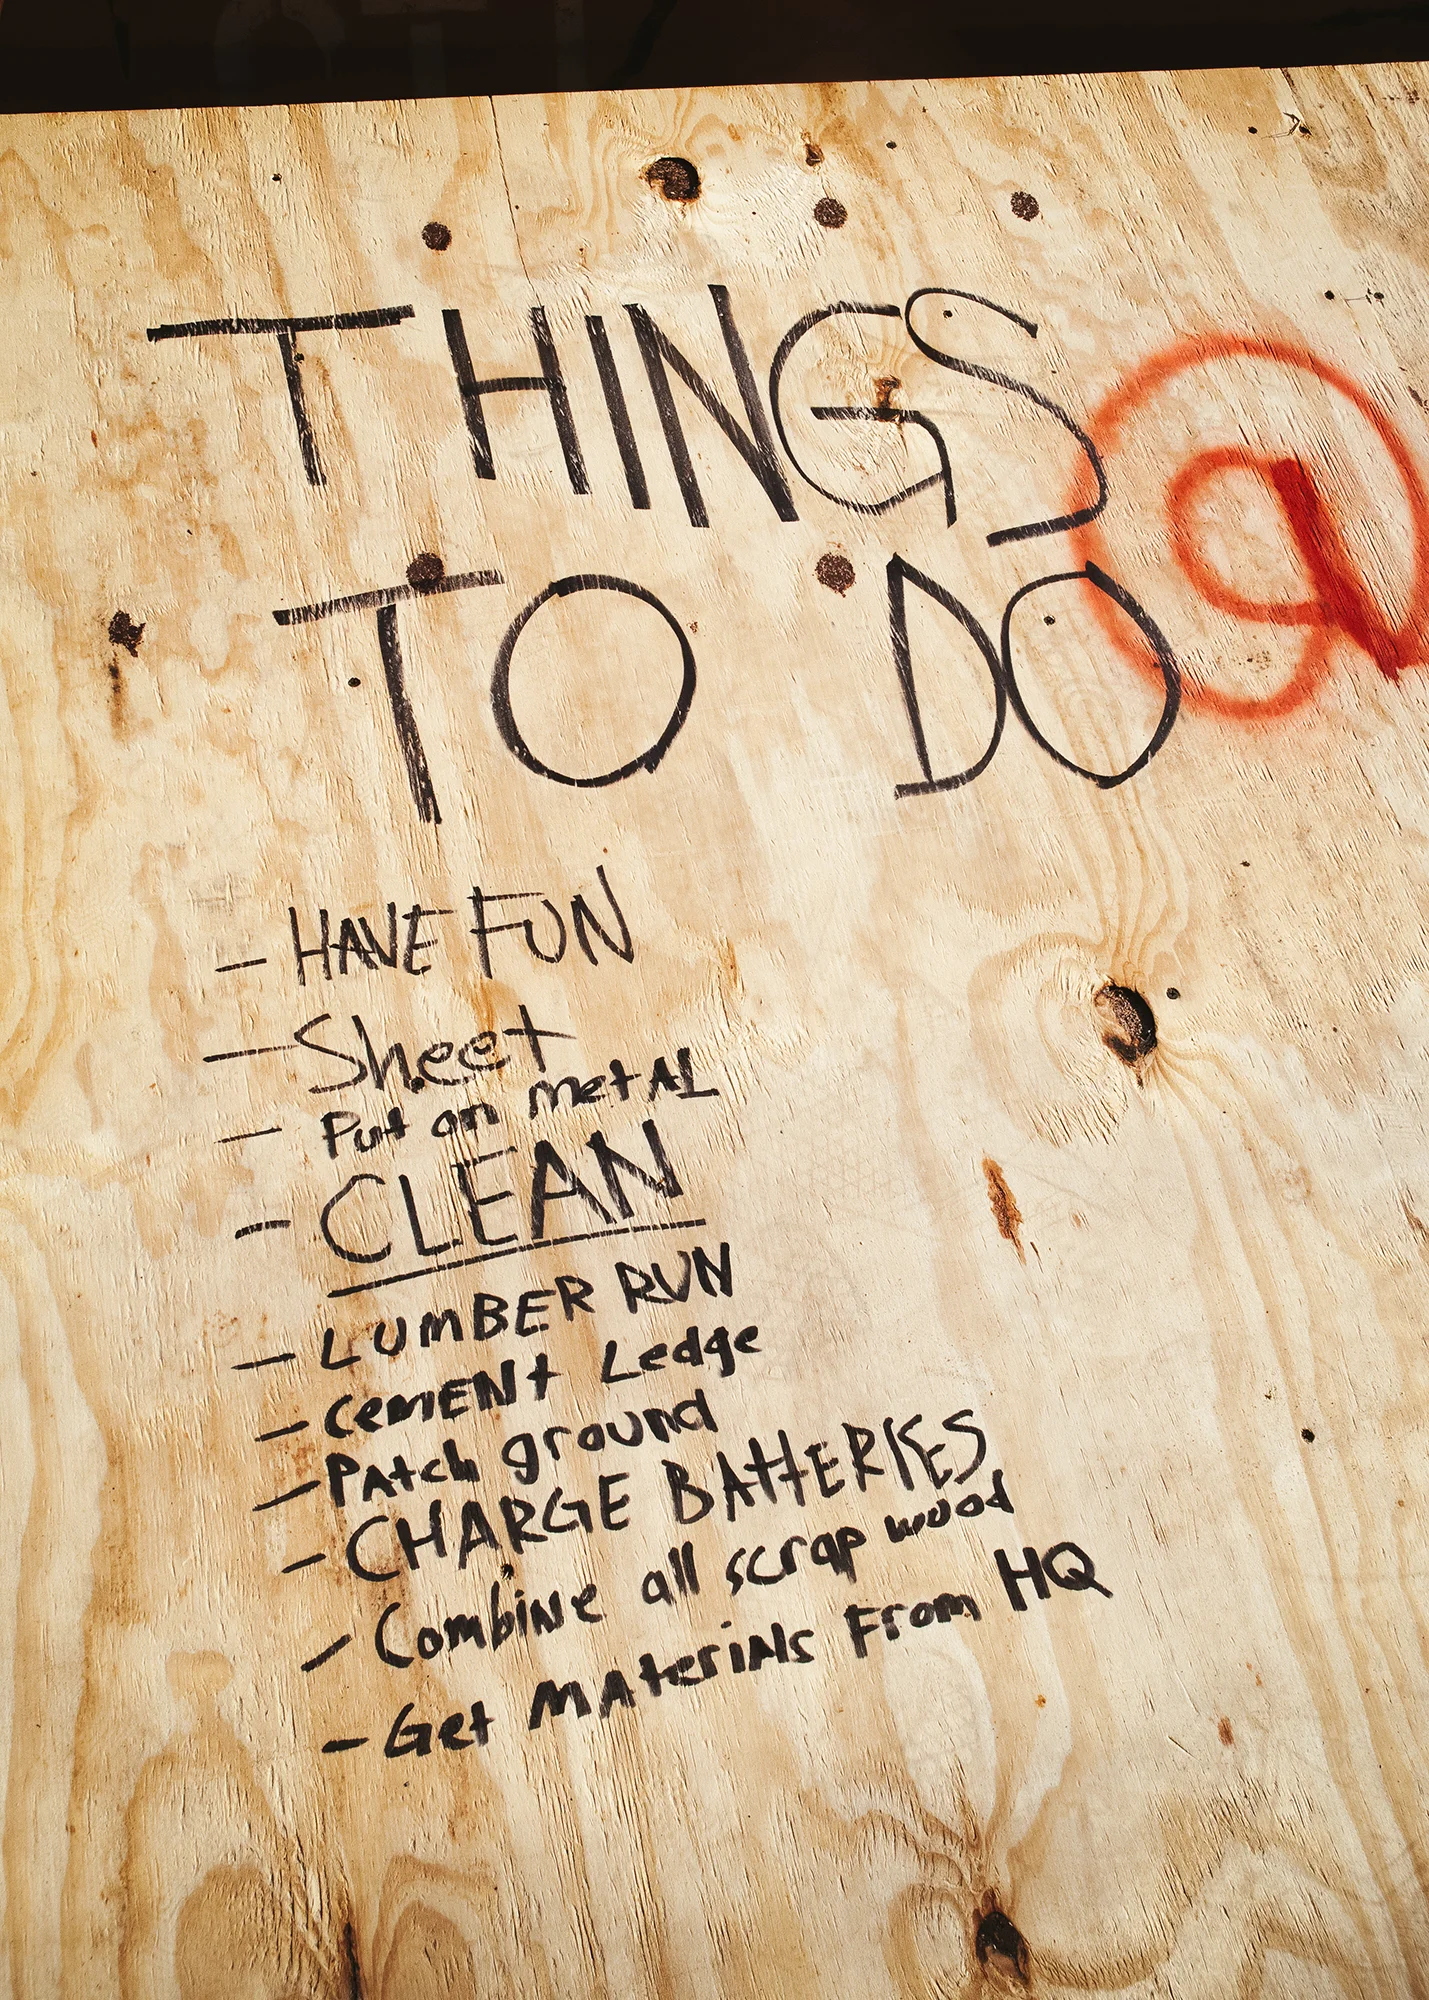 THINGS
TO DO
- HAVE FUN
- Sheet
- Put on metAL
- CLEAN
- LUmBER RUN
- CemENt Ledge
- PAtch ground
- CHARGE BAttERIES
- CombiNe all scrap wood
- Get mAteriAls From HQ